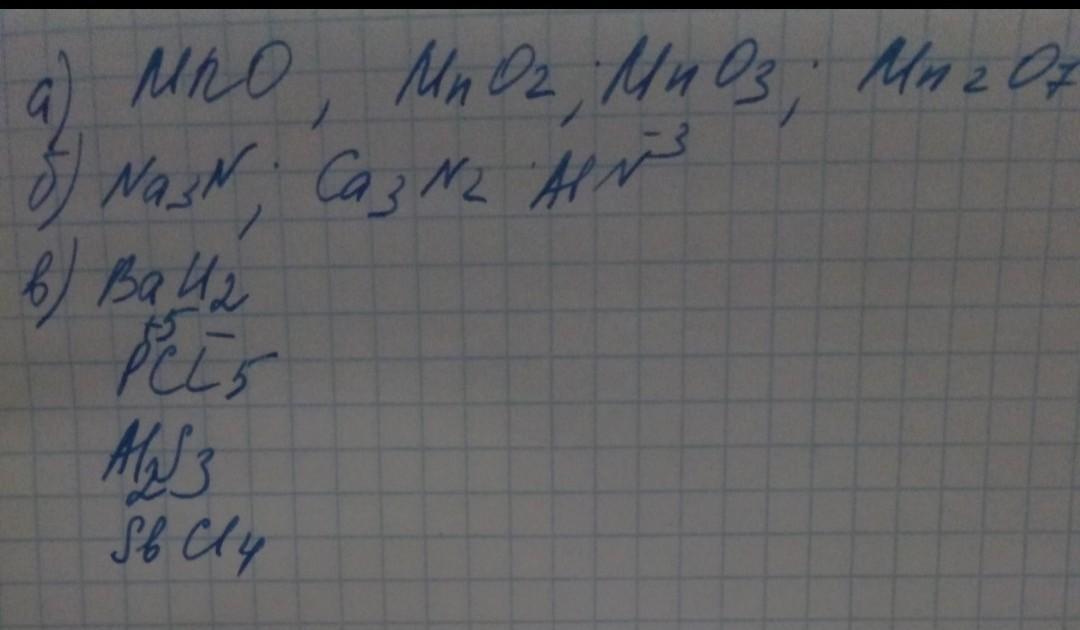 а) MnO, MnO2; MnO3; Mn2O7
б) Na3N; Ca3N2 AlN-3
в) BaH2
+5 -
PCl5
Al2S3
SbCl4